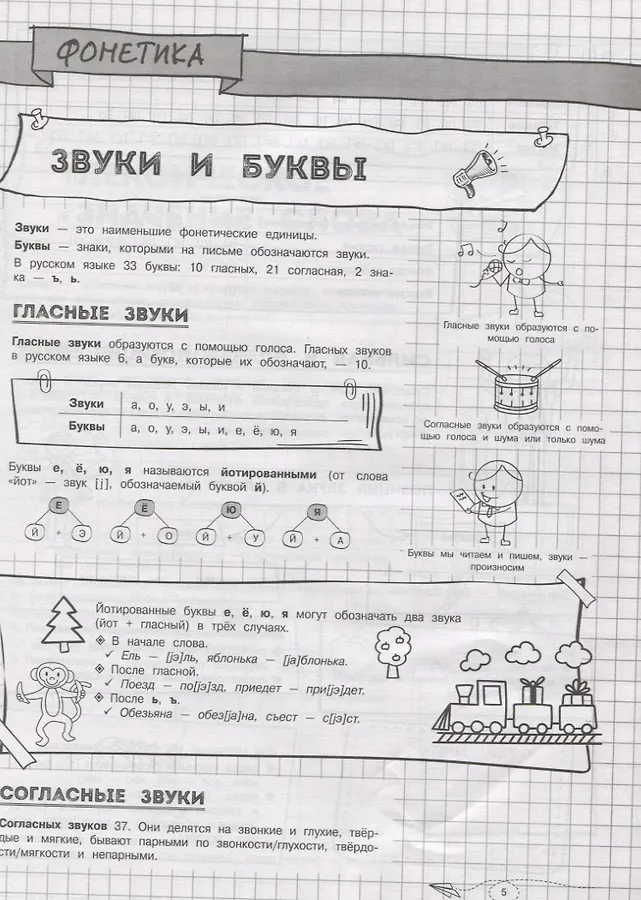 ФОНЕТИКА
ЗВУКИ И БУКВЫ
Звуки — это наименьшие фонетические единицы.
Буквы — знаки, которыми на письме обозначаются звуки.
В русском языке 33 буквы: 10 гласных, 21 согласная, 2 зна-
ка — ъ, ь.
ГЛАСНЫЕ ЗВУКИ
Гласные звуки образуются с помощью голоса. Гласных звуков
в русском языке 6, а букв, которые их обозначают, — 10.
Звуки а, о, у, э, ы, и
Буквы а, о, у, э, ы, и, е, ё, ю, я
Буквы е, ё, ю, я называются йотированными (от слова
«йот» — звук [j], обозначаемый буквой й).
Е Ё Ю Я
Й + Э Й + О Й + У Й + А
Гласные звуки образуются с по-
мощью голоса
Согласные звуки образуются с помо-
щью голоса и шума или только шума
Буквы мы читаем и пишем, звуки —
произносим
Йотированные буквы е, ё, ю, я могут обозначать два звука
(йот + гласный) в трёх случаях.
В начале слова.
✓ Ель — [jэ]ль, яблонька — [jа]блонька.
После гласной.
✓ Поезд — по[jэ]зд, приедет — при[jэ]дет.
После ь, ъ.
✓ Обезьяна — обез[jа]на, съест — с[jэ]ст.
СОГЛАСНЫЕ ЗВУКИ
Согласных звуков 37. Они делятся на звонкие и глухие, твёр-
дые и мягкие, бывают парными по звонкости/глухости, твёрдо-
сти/мягкости и непарными.
5